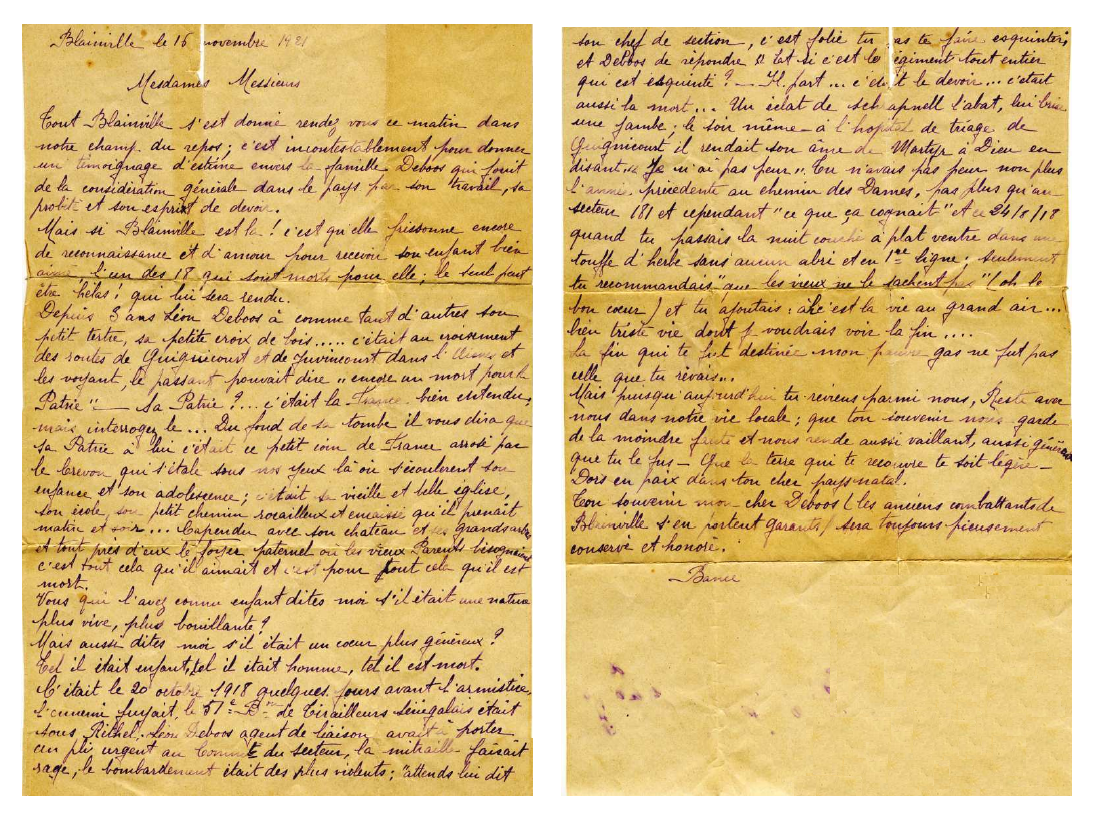 Blainville le 16 novembre 1921
Mesdames Messieurs
Tout Blainville s'est donné rendez vous ce matin dans
notre champ du repos; c'est incontestablement pour donner
un témoignage d'estime envers la famille Deboos qui jouit
de la considération générale dans le pays par son travail, sa
probité et son esprit de devoir.
Mais si Blainville est là! c'est qu'elle frissonne encore
de reconnaissance et d'amour pour recevoir son enfant bien
aimé l'un des 18 qui sont morts pour elle; le seul peut
être hélas! qui lui sera rendu.
Depuis 3 ans Léon Deboos à comme tant d'autres son
petit tertre, sa petite croix de bois..... c'était au croisement
des routes de Guignicourt et de Juvincourt dans l'Aisne et
les voyant, le passant pouvait dire "encore un mort pour la
Patrie" — Sa Patrie?... c'était la France bien entendu,
mais interrogez le... Du fond de sa tombe il vous dira que
sa Patrie à lui c'était ce petit coin de France arrosé par
le Crevon qui s'étale sous nos yeux là où s'écoulèrent son
enfance et son adolescence; c'était sa vieille et belle église,
son école, son petit chemin rocailleux et encaissé qu'il prenait
matin et soir... Capendu avec son chateau et ses grands arbres
et tout près d'eux le foyer paternel où les vieux Parents besognaient
c'est tout cela qu'il aimait et c'est pour tout cela qu'il est
mort.
Vous qui l'avez connu enfant dites moi s'il était une nature
plus vive, plus bouillante?
Mais aussi dites moi s'il était un coeur plus généreux?
Tel il était enfant, tel il était homme, tel il est mort.
C'était le 20 octobre 1918 quelques jours avant l'armistice,
l'ennemi fuyait, le 57e Bon de Tirailleurs sénégalais était
sous Réthel. Léon Deboos agent de liaison avait à porter
un pli urgent au du secteur, la mitraille faisait
rage, le bombardement était des plus violents; "attends lui dit
son chef de section, c'est folie tu vas te faire esquinter;
et Deboos de répondre si c'est le régiment tout entier
qui est esquinté? — Il part... c'était le devoir... c'était
aussi la mort... Un éclat de schrapnell l'abat, lui brise
une jambe; le soir même à l'hopital de triage de
Guignicourt il rendait son âme de Martyr à Dieu en
disant "Je n'ai pas peur". Tu n'avais pas peur non plus
l'année précédente au chemin des Dames, pas plus qu'au
secteur 181 et cependant "ce que ça cognait" et ce 24/8/18
quand tu passais la nuit couché à plat ventre dans une
touffe d'herbe sans aucun abri et en 1re ligne; seulement
tu recommandais "que les vieux ne le sachent pas" (oh le
bon coeur) et tu ajoutais: c'est la vie au grand air...
bien triste vie dont j voudrais voir la fin....
La fin qui te fut destinée mon pauvre gas ne fut pas
celle que tu rêvais...
Mais puisqu'aujourd'hui tu reviens parmi nous, Reste avec
nous dans notre vie locale; que ton souvenir nous garde
de la moindre faute et nous rende aussi vaillant, aussi généreux
que tu le fus — Que la terre qui te recouvre te soit légère —
Dors en paix dans ton cher pays natal.
Ton souvenir mon cher Deboos (les anciens combattants de
Blainville s'en portent garants) sera toujours pieusement
conservé et honoré.